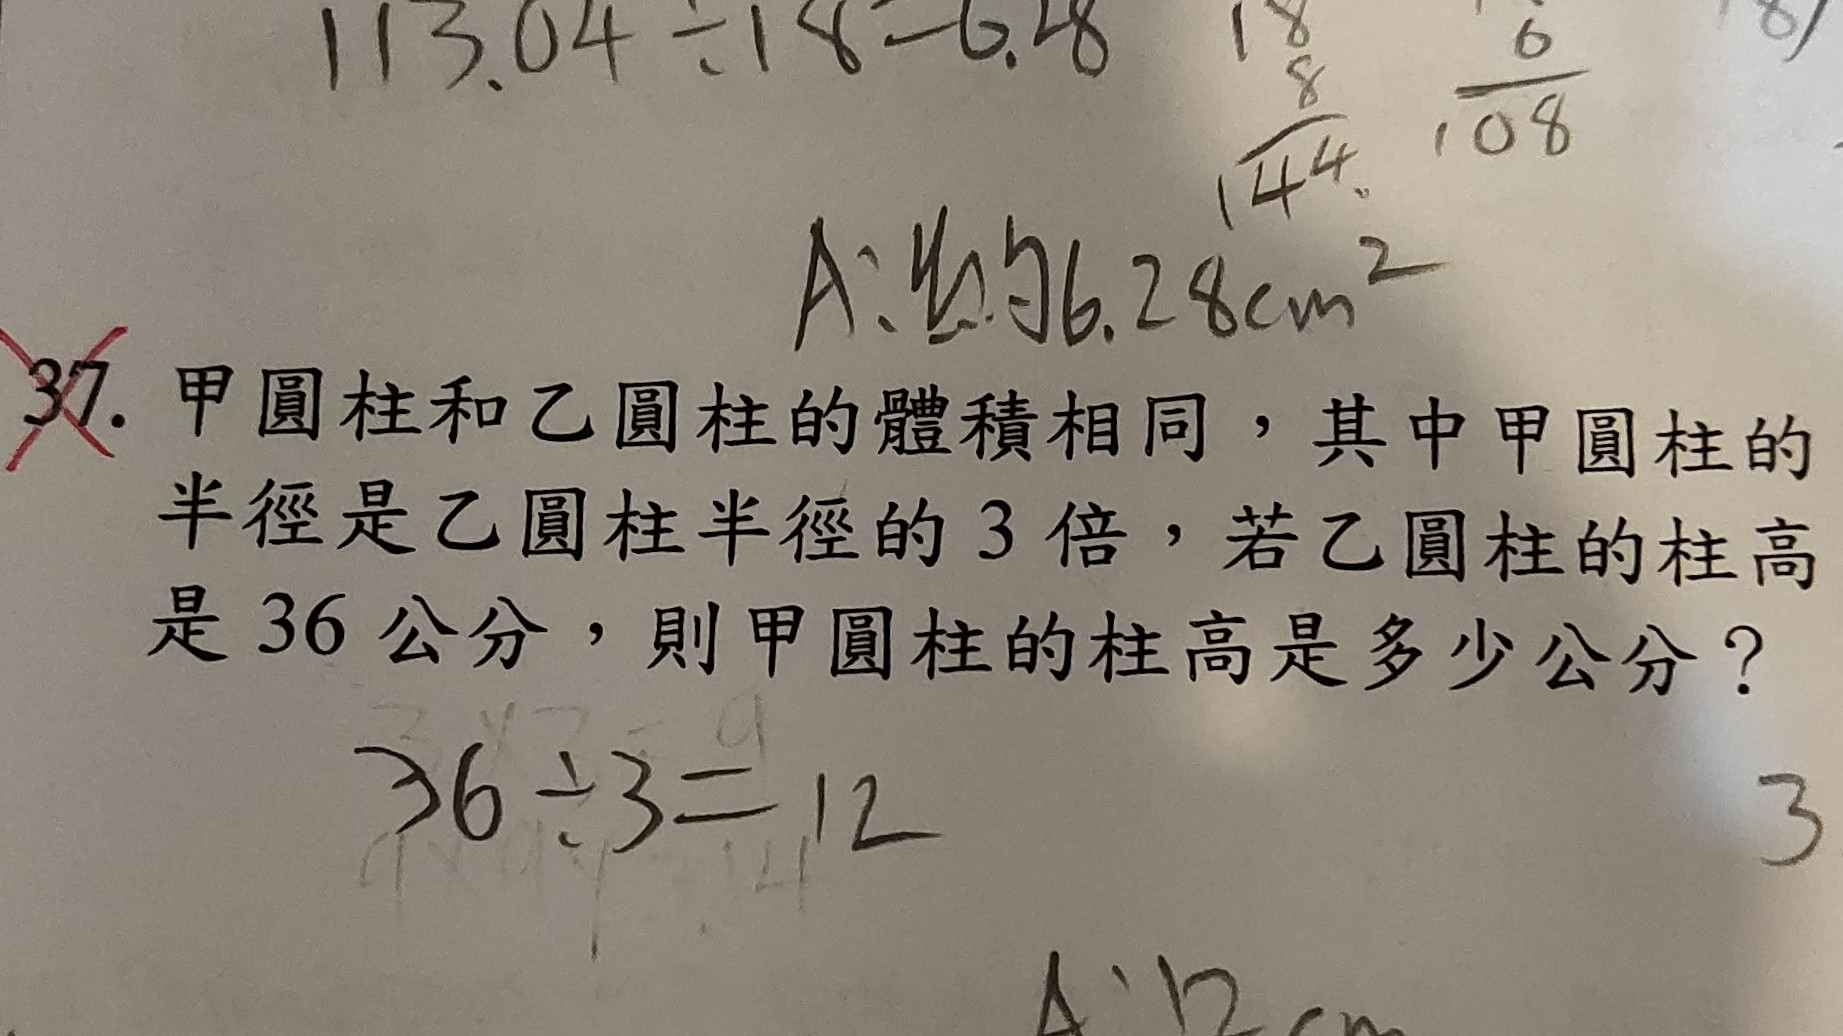 113.04÷18=6.28
18
8
144
6
108
A:約6.28cm²
37. 甲圓柱和乙圓柱的體積相同，其中甲圓柱的
半徑是乙圓柱半徑的 3 倍，若乙圓柱的柱高
是 36 公分，則甲圓柱的柱高是多少公分？
36÷3=12
3
A:12cm